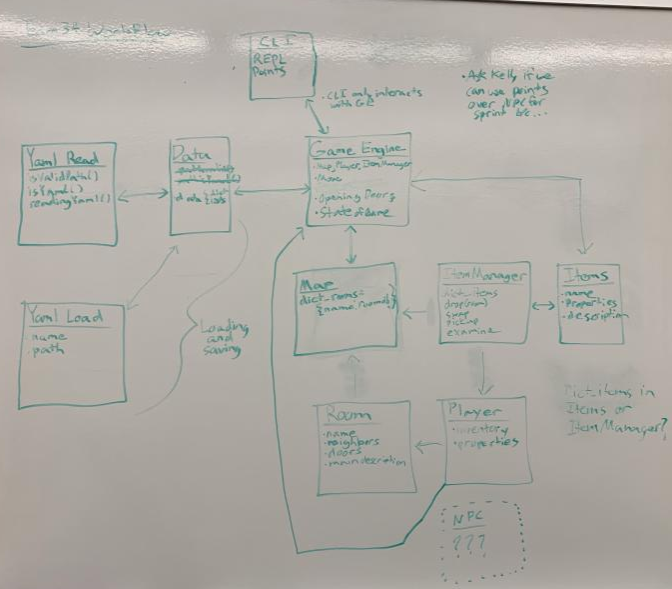 CLI
REPL
Points
· CLI only interacts
with GE
· Ask Kelly if we
can use points
over NPC for
sprint b/c...
Yaml Read
isValidPath()
isYaml()
readingYaml()
Data
data
Game Engine
· Map, Player, ItemManager
· Move
· Opening Doors
· State of Game
Yaml Load
· name
· path
Loading
and
saving
Map
dict_rooms=
ItemManager
dict_items
drop(room)
swap
pickup
examine
Items
· name
· properties
· description
Room
· name
· neighbors
· doors
Player
· inventory
· properties
Dict_items in
Items or
ItemManager?
NPC
???